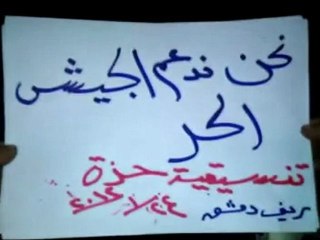 نحن ندعم الجيش
الحر
تنسيقية حزة
ريف دمشق